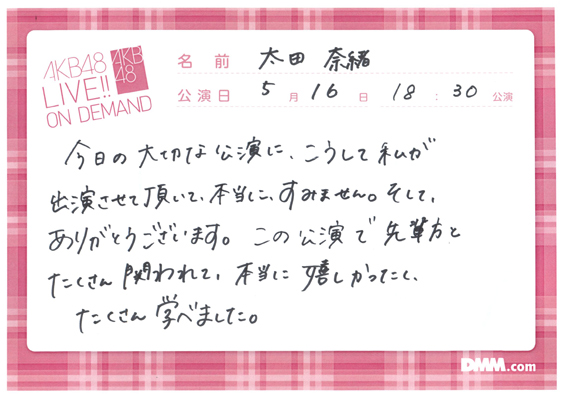 AKB48
LIVE!!
ON DEMAND
AKB
48
名前 太田 奈緒
公演日 5月16日 18:30公演
今日の大切な公演に、こうして私が
出演させて頂いて、本当に、すみません。そして、
ありがとうございます。この公演で先輩方と
たくさん関われて、本当に嬉しかったし、
たくさん学べました。
DMM.com